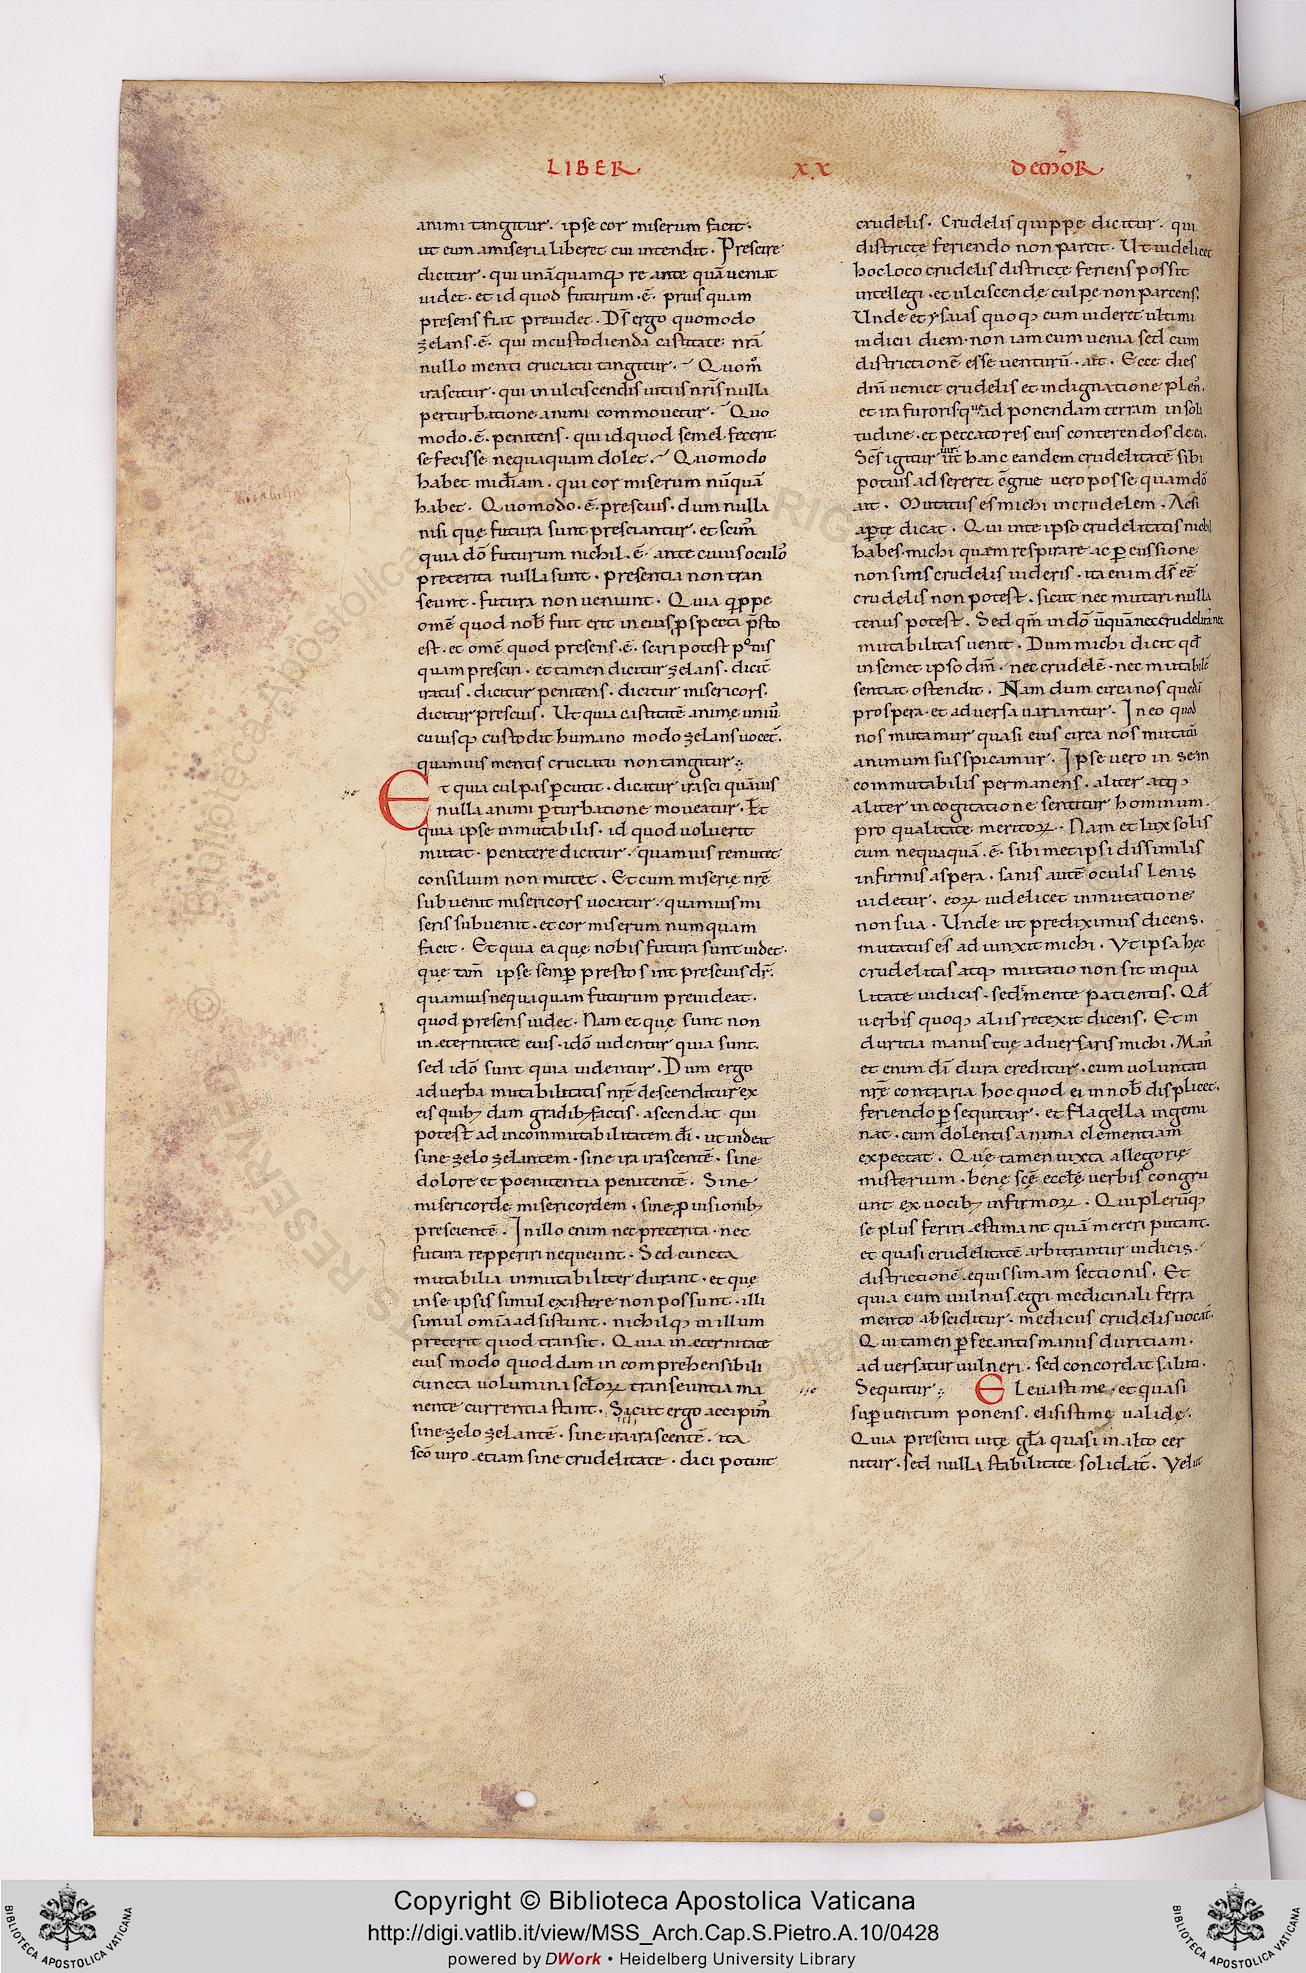 LIBER XX DEMOR
animi tangitur. ipse cor miserum facit.
ut eum amiseria liberet cui intendit. Prescire
dicitur. qui unāquamq; re ante quā ueniat
uidet. et id quod futurum .ē. prius quam
presens fiat preuidet. Ds̄ ergo quomodo
zelans .ē. qui incustodienda castitate nr̄a
nullo menti cruciatu tangitur. Quom̄
irascitur. qui in ulciscendis uitiis nr̄is nulla
perturbatione animi commouetur. Quo
modo .ē. penitens. qui id quod semel fecerit
se fecisse nequaquam dolet. Quomodo
habet mīdiam. qui cor miserum nūquā
habet. Quomodo .ē. prescius. dum nulla
nisi que futura sunt presciantur. et scim̄
quia dō futurum nichil .ē. ante cuius oculo᷒
preterita nulla sunt. presentia non tran
seunt. futura non ueniunt. Quia qippe
omē quod nob̄ fuit erit in eius ꝓspectu p̄sto
est. et omē quod presens .ē. sciri potest poti᷒
quam presciri. et tamen dicitur zelans. dicit̄
iratus. dicitur penitens. dicitur misericors.
dicitur prescius. Ut quia castitatē anime uniu᷒
cuiusq; custodit humano modo zelans uocet̄.
quamuis mentis cruciatu non tangitur.
Et quia culpas ꝑcutit. dicatur irasci quāuis
nulla animi ꝑturbatione moueatur. Et
quia ipse inmutabilis. id quod uoluerit
mutat. penitere dicitur. quamuis re mutet
consilium non mutet. Et cum miserie nr̄ę
subuenit misericors uocatur. quamuis mi
seris subuenit. et cor miserum numquam
facit. Et quia ea que nobis futura sunt uidet.
quę tam̄ ipse semꝑ presto sint prescius dr̄.
quamuis nequaquam futurum preuideat.
quod presens uidet. Nam et quę sunt non
in ęternitate eius. idō uidentur quia sunt.
sed idō sunt quia uidentur. Dum ergo
ad uerba mutabilitatis nr̄ę descenditur ex
eis quib; dam gradib; factis. ascendat qui
potest ad incommutabilitatem dī. ut uideat
sine zelo zelantem. sine ira irascentē. sine
dolore et poenitentia penitentē. Sine
misericorde misericordem. sine ꝓuisionib;
prescientē. In illo enim nec preterita. nec
futura repperiri nequeunt. Sed cuncta
mutabilia inmutabiliter durant. et quę
in se ipsis simul existere non possunt. illi
simul omīa adsistunt. nichilq; in illum
preterit quod transit. Quia in ęternitate
eius modo quoddam incomprehensibili
cuncta uolumina sclōꝝ transeuntia ma
nente currentia stant. Sicut ergo accipim᷒
sine zelo zelantē. sine ira irascentē. ita
scō uiro etiam sine crudelitate. dici potuit
crudelis. Crudelis quippe dicitur. qui
districte feriendo non parcit. Ut uidelicet
hoc loco crudelis districtę feriens possit
intellegi. et ulciscendę culpe non parcens.
Unde et ysaias quoq; cum uideret ultimi
iudicii diem. non iam cum uenia sed cum
districtionē esse uenturū. ait. Ecce dies
dnī ueniet crudelis et indignatione plen᷒.
et ira furorisq; ad ponendam terram in soli
tudine. et peccatores eius conterendos de ea.
Scs̄ igitur uir ut hanc eandem crudelitatē sibi
potius adsereret cōgrue uero posse quam dō
ait. Mutatus es michi in crudelem. Acsi
aꝑtę dicat. Qui in te ipso crudelitatis nichil
habes. michi quem respirare ac ꝑcussione
non sinis crudelis uideris. ita enim ds̄ eē
crudelis non potest. sicut nec mutari nulla
tenus potest. Sed qm̄ in dō nūquā nec crudelitas nec
mutabilitas uenit. Dum michi dicit qd̄
in semet ipso dm̄. nec crudelē. nec mutabilē
sentiat ostendit. Nam dum circa nos quedā
prospera. et aduersa uariantur. In eo quod
nos mutamur quasi eius circa nos mutatū
animum suspicamur. Ipse uero in sem
commutabilis permanens. aliter atq;
aliter in cogitatione sentitur hominum.
pro qualitate meritoꝝ. Nam et lux solis
cum nequaquā .ē. sibimet ipsi dissimilis
infirmis aspera. sanis autē oculis lenis
uidetur. eoꝝ uidelicet inmutatione
non sua. Unde ut prediximus dicens.
mutatus es ad uinxit michi. Ut ipsa hęc
crudelitas atq; mutatio non sit in qua
litate iudicis. sed mente patientis. Qd̄
uerbis quoq; aliis retexit dicens. Et in
duritia manus tuę aduersaris michi. Man᷒
et enim dī dura creditur. cum uoluntati
nr̄ę contraria hoc quod ei in nob̄ displicet.
feriendo ꝑsequitur. et flagella ingemi
nat. cum dolentis anima clementiam
expectat. Quę tamen iuxta allegorię
misterium. bene scē eccl̄ę uerbis congru
unt ex uocib; infirmoꝝ. Qui plerūq;
se plus feriri ęstimant quā mereri putant.
et quasi crudelitatē arbitrantur iudicis.
districtionē equissimam sectionis. Et
quia cum uulnus ęgri medicinali ferra
mento absciditur. medicus crudelis uocat̄.
Qui tamen ꝑ secantis manus duritiam.
aduersatur uulneri. sed concordat saluti.
Sequitur. Eleuasti me. et quasi
suꝑ uentum ponens. elisisti me ualidę.
Quia presenti uitę gl̄a quasi in alto cer
nitur. sed nulla stabilitate solidat̄. Velut
Copyright © Biblioteca Apostolica Vaticana
http://digi.vatlib.it/view/MSS_Arch.Cap.S.Pietro.A.10/0428
powered by DWork • Heidelberg University Library
BIBLIOTECA APOSTOLICA VATICANA
BIBLIOTECA APOSTOLICA VATICANA